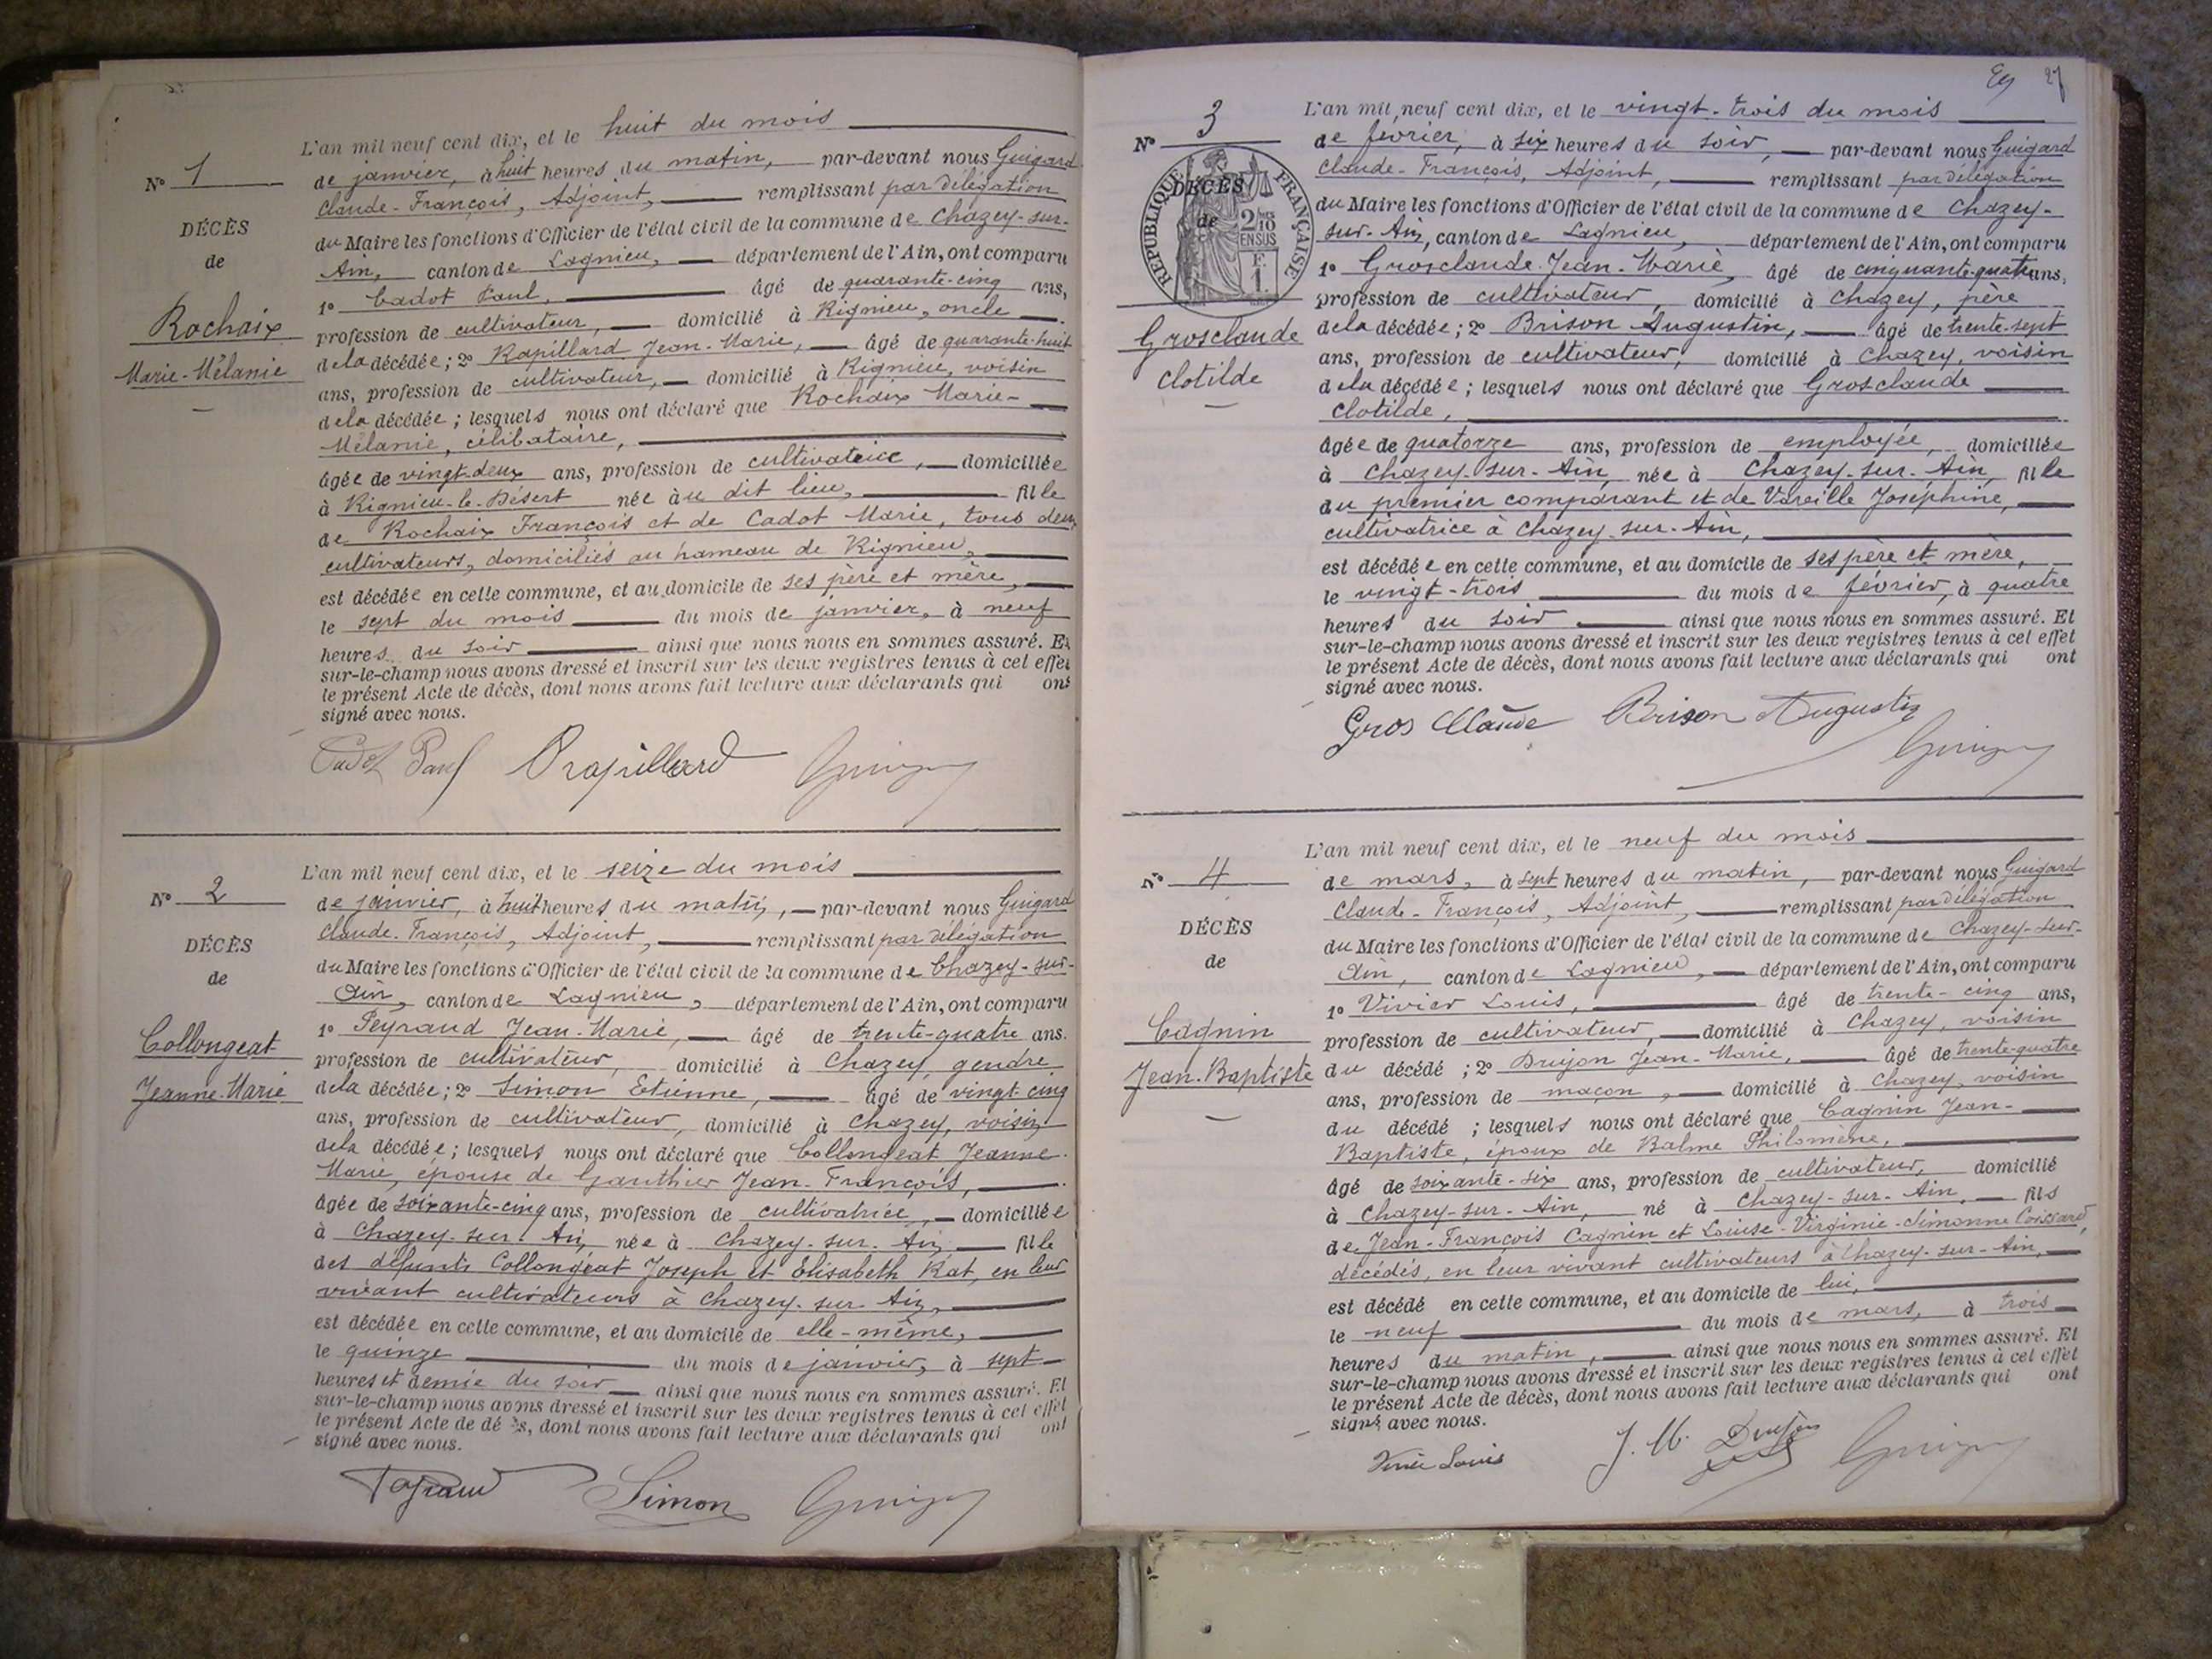 N° 1
DÉCÈS
de
Rochaix
Marie-Mélanie
L'an mil neuf cent dix, et le huit du mois
de janvier, à huit heures du matin, par-devant nous Guigard
Claude-François, Adjoint, remplissant par délégation
du Maire les fonctions d'Officier de l'état civil de la commune de Chazey-sur-
Ain, canton de Lagnieu, département de l'Ain, ont comparu
1° Cadot Paul, âgé de quarante-cinq ans,
profession de cultivateur, domicilié à Rignieu, oncle
de la décédée; 2° Rapillard Jean-Marie, âgé de quarante-huit
ans, profession de cultivateur, domicilié à Rignieu, voisin
de la décédée; lesquels nous ont déclaré que Rochaix Marie-
Mélanie, célibataire,
âgée de vingt-deux ans, profession de cultivatrice, domiciliée
à Rignieu-le-Désert née àu dit lieu, fille
de Rochaix François et de Cadot Marie, tous deux
cultivateurs, domiciliés au hameau de Rignieu,
est décédée en cette commune, et au domicile de ses père et mère,
le sept du mois du mois de janvier, à neuf
heures du soir ainsi que nous nous en sommes assuré. Et
sur-le-champ nous avons dressé et inscrit sur les deux registres tenus à cet effet
le présent Acte de décès, dont nous avons fait lecture aux déclarants qui ont
signé avec nous.
Cadot Paul Rapillard
N° 2
DÉCÈS
de
Collongeat
Jeanne-Marie
L'an mil neuf cent dix, et le seize du mois
de janvier, à huit heures du matin, par-devant nous Guigard
Claude-François, Adjoint, remplissant par délégation
du Maire les fonctions d'Officier de l'état civil de la commune de Chazey-sur-
Ain, canton de Lagnieu, département de l'Ain, ont comparu
1° Peyraud Jean-Marie, âgé de trente-quatre ans.
profession de cultivateur, domicilié à Chazey, gendre
de la décédée; 2° Simon Etienne, âgé de vingt-cinq
ans, profession de cultivateur, domicilié à Chazey, voisin
de la décédée; lesquels nous ont déclaré que Collongeat Jeanne-
Marie, épouse de Gauthier Jean-François,
âgée de soixante-cinq ans, profession de cultivatrice, domiciliée
à Chazey-sur-Ain, née à Chazey-sur-Ain, fille
des défunts Collongeat Joseph et Elisabeth Rat, en leur
vivant cultivateurs à Chazey-sur-Ain,
est décédée en cette commune, et au domicile de elle-même,
le quinze du mois de janvier, à sept
heures et demie du soir ainsi que nous nous en sommes assuré. Et
sur-le-champ nous avons dressé et inscrit sur les deux registres tenus à cet effet
le présent Acte de décès, dont nous avons fait lecture aux déclarants qui ont
signé avec nous.
Simon
27
N° 3
RÉPUBLIQUE FRANÇAISE
DÉCÈS
de
2/10
EN SUS
F.
1
Grosclaude
Clotilde
L'an mil neuf cent dix, et le vingt-trois du mois
de février, à six heures du soir, par-devant nous Guigard
Claude-François, Adjoint, remplissant par délégation
du Maire les fonctions d'Officier de l'état civil de la commune de Chazey-
sur-Ain, canton de Lagnieu, département de l'Ain, ont comparu
1° Grosclaude Jean-Marie, âgé de cinquante-quatre ans,
profession de cultivateur, domicilié à Chazey, père
de la décédée; 2° Brison Augustin, âgé de trente-sept
ans, profession de cultivateur, domicilié à Chazey, voisin
de la décédée; lesquels nous ont déclaré que Grosclaude
Clotilde,
âgée de quatorze ans, profession de employée, domiciliée
à Chazey-sur-Ain, née à Chazey-sur-Ain, fille
du premier comparant et de Vareille Joséphine,
cultivatrice à Chazey-sur-Ain,
est décédée en cette commune, et au domicile de ses père et mère,
le vingt-trois du mois de février, à quatre
heures du soir ainsi que nous nous en sommes assuré. Et
sur-le-champ nous avons dressé et inscrit sur les deux registres tenus à cet effet
le présent Acte de décès, dont nous avons fait lecture aux déclarants qui ont
signé avec nous.
Gros Claude Brison Augustin
N° 4
DÉCÈS
de
Cagnin
Jean-Baptiste
L'an mil neuf cent dix, et le neuf du mois
de mars, à sept heures du matin, par-devant nous Guigard
Claude-François, Adjoint, remplissant par délégation
du Maire les fonctions d'Officier de l'état civil de la commune de Chazey-sur-
Ain, canton de Lagnieu, département de l'Ain, ont comparu
1° Vivier Louis, âgé de trente-cinq ans,
profession de cultivateur, domicilié à Chazey, voisin
du décédé; 2° Drujon Jean-Marie, âgé de trente-quatre
ans, profession de maçon, domicilié à Chazey, voisin
du décédé; lesquels nous ont déclaré que Cagnin Jean-
Baptiste, époux de Balme Philomène,
âgé de soixante-six ans, profession de cultivateur, domicilié
à Chazey-sur-Ain, né à Chazey-sur-Ain, fils
de Jean-François Cagnin et Louise-Virginie-Simonne
décédés, en leur vivant cultivateurs à Chazey-sur-Ain,
est décédé en cette commune, et au domicile de lui,
le neuf du mois de mars, à trois
heures du matin, ainsi que nous nous en sommes assuré. Et
sur-le-champ nous avons dressé et inscrit sur les deux registres tenus à cet effet
le présent Acte de décès, dont nous avons fait lecture aux déclarants qui ont
signé avec nous.
Vivier Louis J. M. Drujon